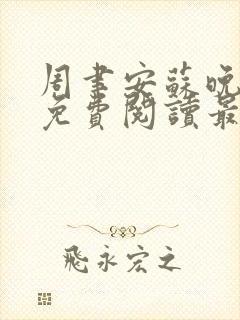 周書安蘇晚
免費閱讀最
飛永宏之